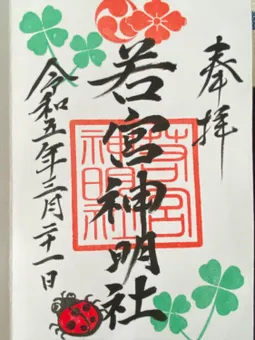 奉拝
若宮神明社
令和五年三月二十一日
若宮神明社